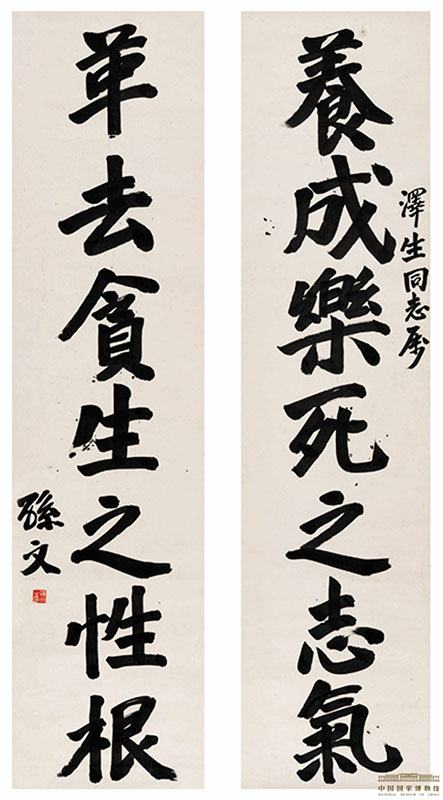 養成樂死之志氣
澤生同志属
革去貪生之性根
孫文
中国国家博物馆
NATIONAL MUSEUM OF CHINA